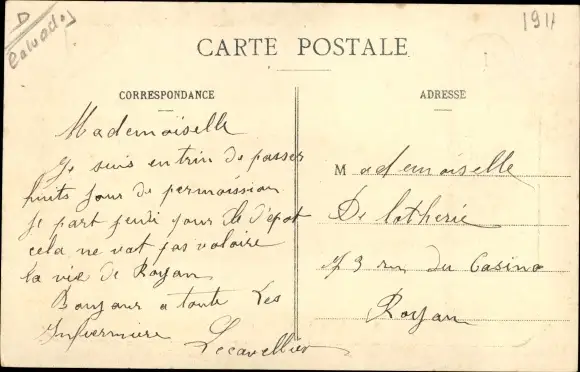 D
Calvados
1911
CARTE POSTALE
CORRESPONDANCE
Mademoiselle
Je suis en trin de passer
huits jour de permoission
je part jeudi pour le d'epot
cela ne vat pas valoire
la vie de Royan
Bonjour a toute Les
Infirmiere
Lecavellier
ADRESSE
Mademoiselle
De lotherie
73 ru du Casino
Royan